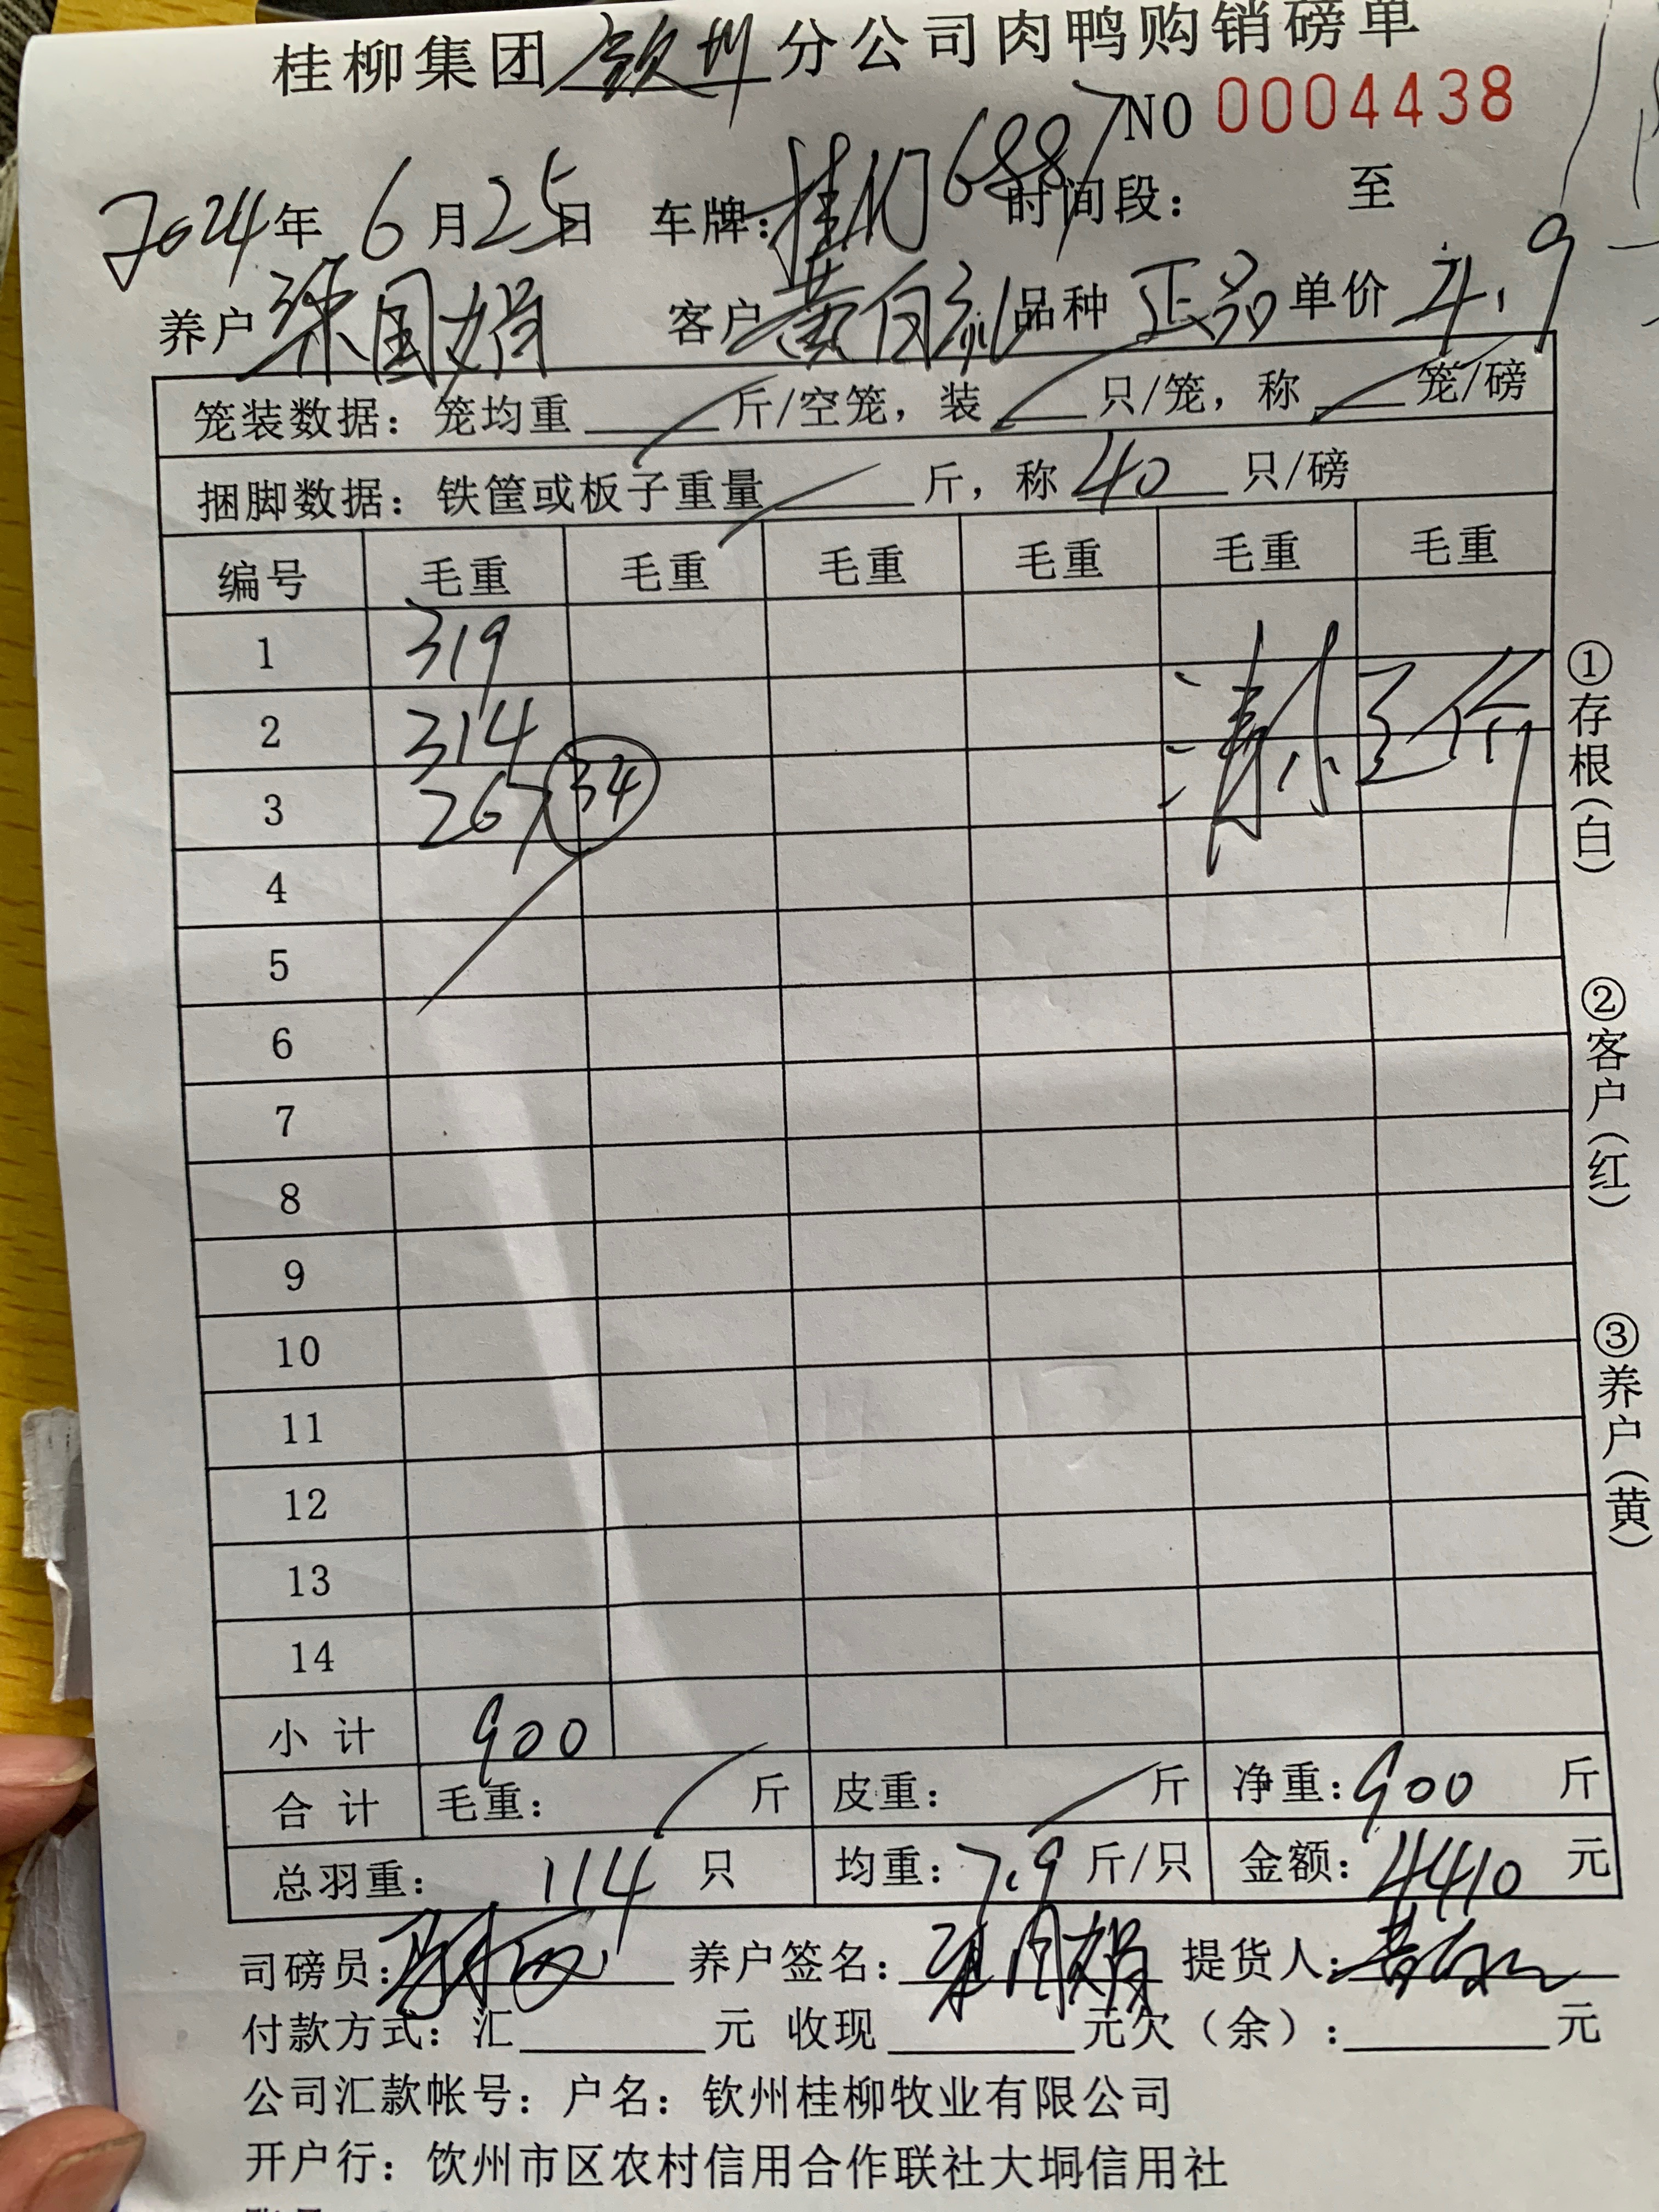 桂柳集团 钦州 分公司肉鸭购销磅单
NO 0004438
2024年 6月25日 车牌: 桂 6887 时间段: 至
养户 国娟 客户 黄 品种 正品 单价 4.9
笼装数据: 笼均重 斤/空笼, 装 只/笼, 称 笼/磅
捆脚数据: 铁筐或板子重量 斤, 称 40 只/磅
编号 毛重 毛重 毛重 毛重 毛重 毛重
1 319
2 314
3 267 34
4
5
6
7
8
9
10
11
12
13
14
小计 900
合计 毛重: 斤 皮重: 斤 净重: 900 斤
总羽重: 114 只 均重: 7.9 斤/只 金额: 4410 元
司磅员: 养户签名: 提货人:
付款方式: 汇 元 收现 元欠(余): 元
公司汇款帐号: 户名: 钦州桂柳牧业有限公司
开户行: 钦州市区农村信用合作联社大垌信用社
①存根(白)
②客户(红)
③养户(黄)